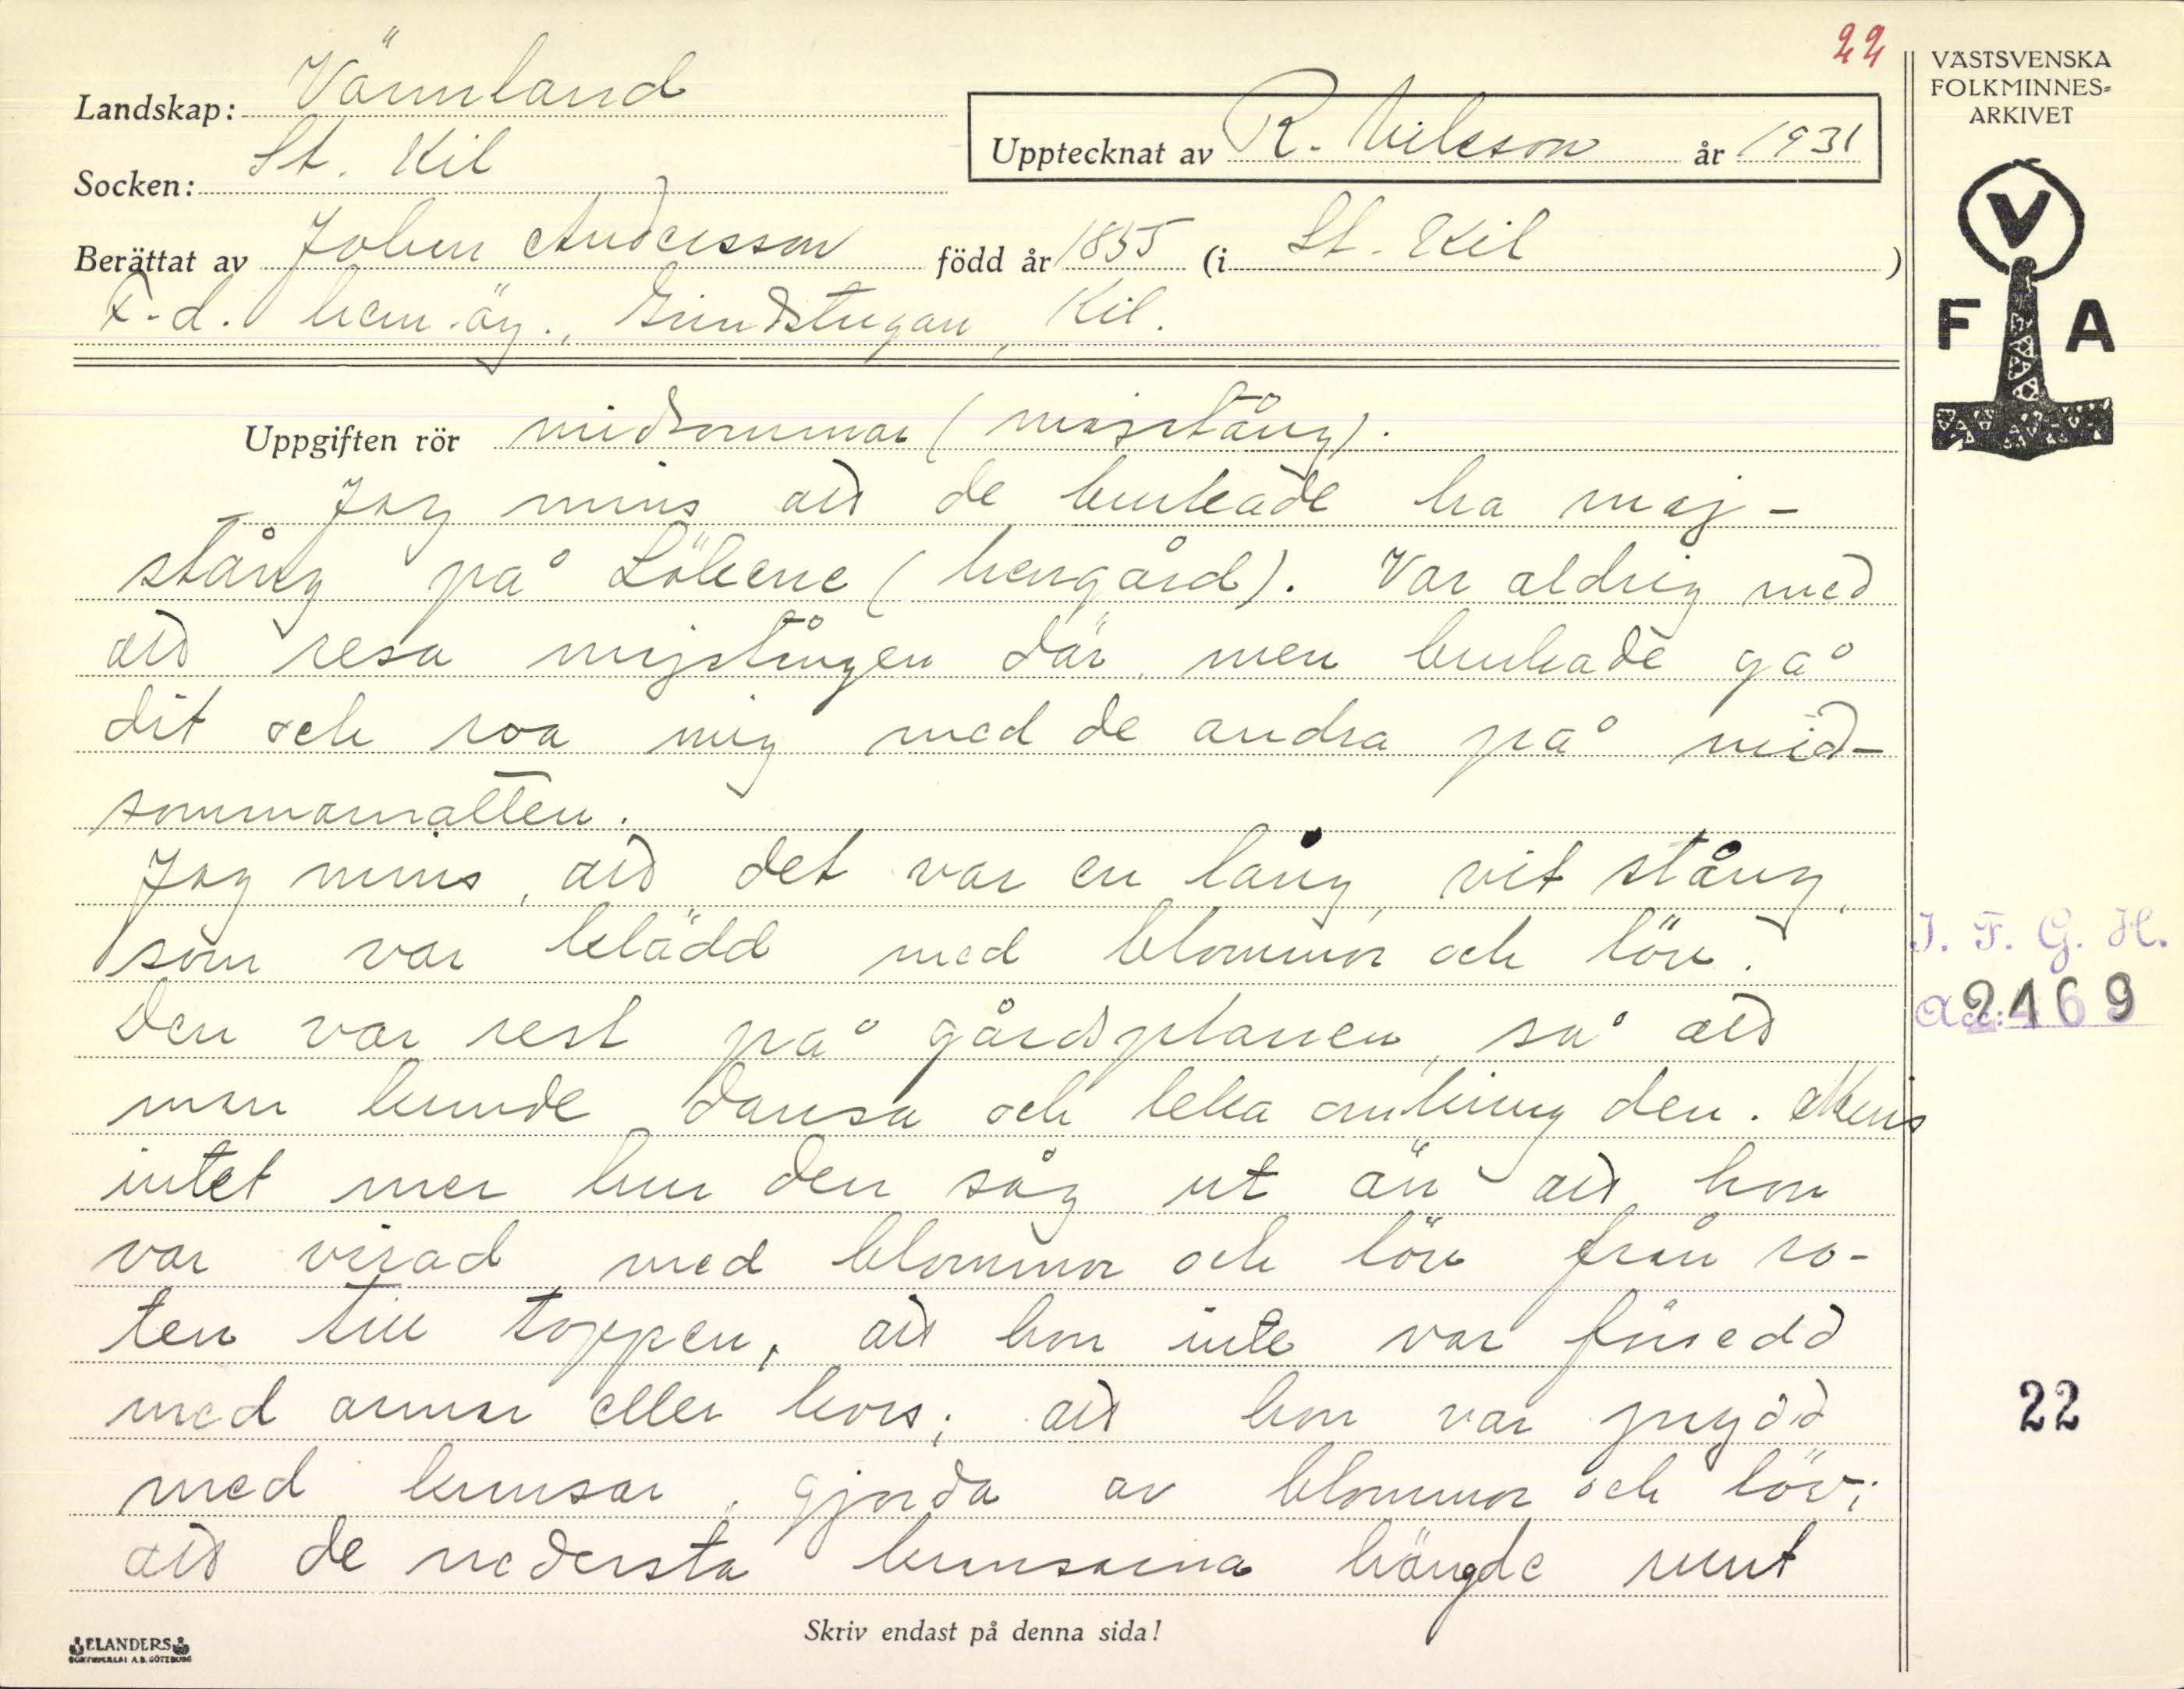 22
VÄSTSVENSKA
FOLKMINNES-
ARKIVET
Landskap: Värmland
Upptecknat av R. Nilsson år 1931
Socken: St. Kil
Berättat av Johan Andersson född år 1855 (i St. Kil)
F.d. hem.äg., Grindstugan, Kil.
V
F A
Uppgiften rör midsommar (majstång).
Jag mins att de brukade ha maj-
stång på Lökene (herrgård). Var aldrig med
att resa majstången där, men brukade gå
dit och roa mig med de andra på mid-
sommarnatten.
Jag mins, att det var en lång, vit stång,
som var klädd med blommor och löv.
Den var rest på gårdsplanen, så att
man kunde dansa och leka omkring den. Mins
intet mer hur den såg ut än att hon
var virad med blommor och löv från ro-
ten till toppen, att hon inte var försedd
med armar eller kors; att hon var prydd
med kransar, gjorda av blommor och löv;
att de nedersta kransarna hängde runt
I. F. G. H.
Acc: 2469
22
Skriv endast på denna sida!
ELANDERS
BOKTRYCKERI A.B. GÖTEBORG